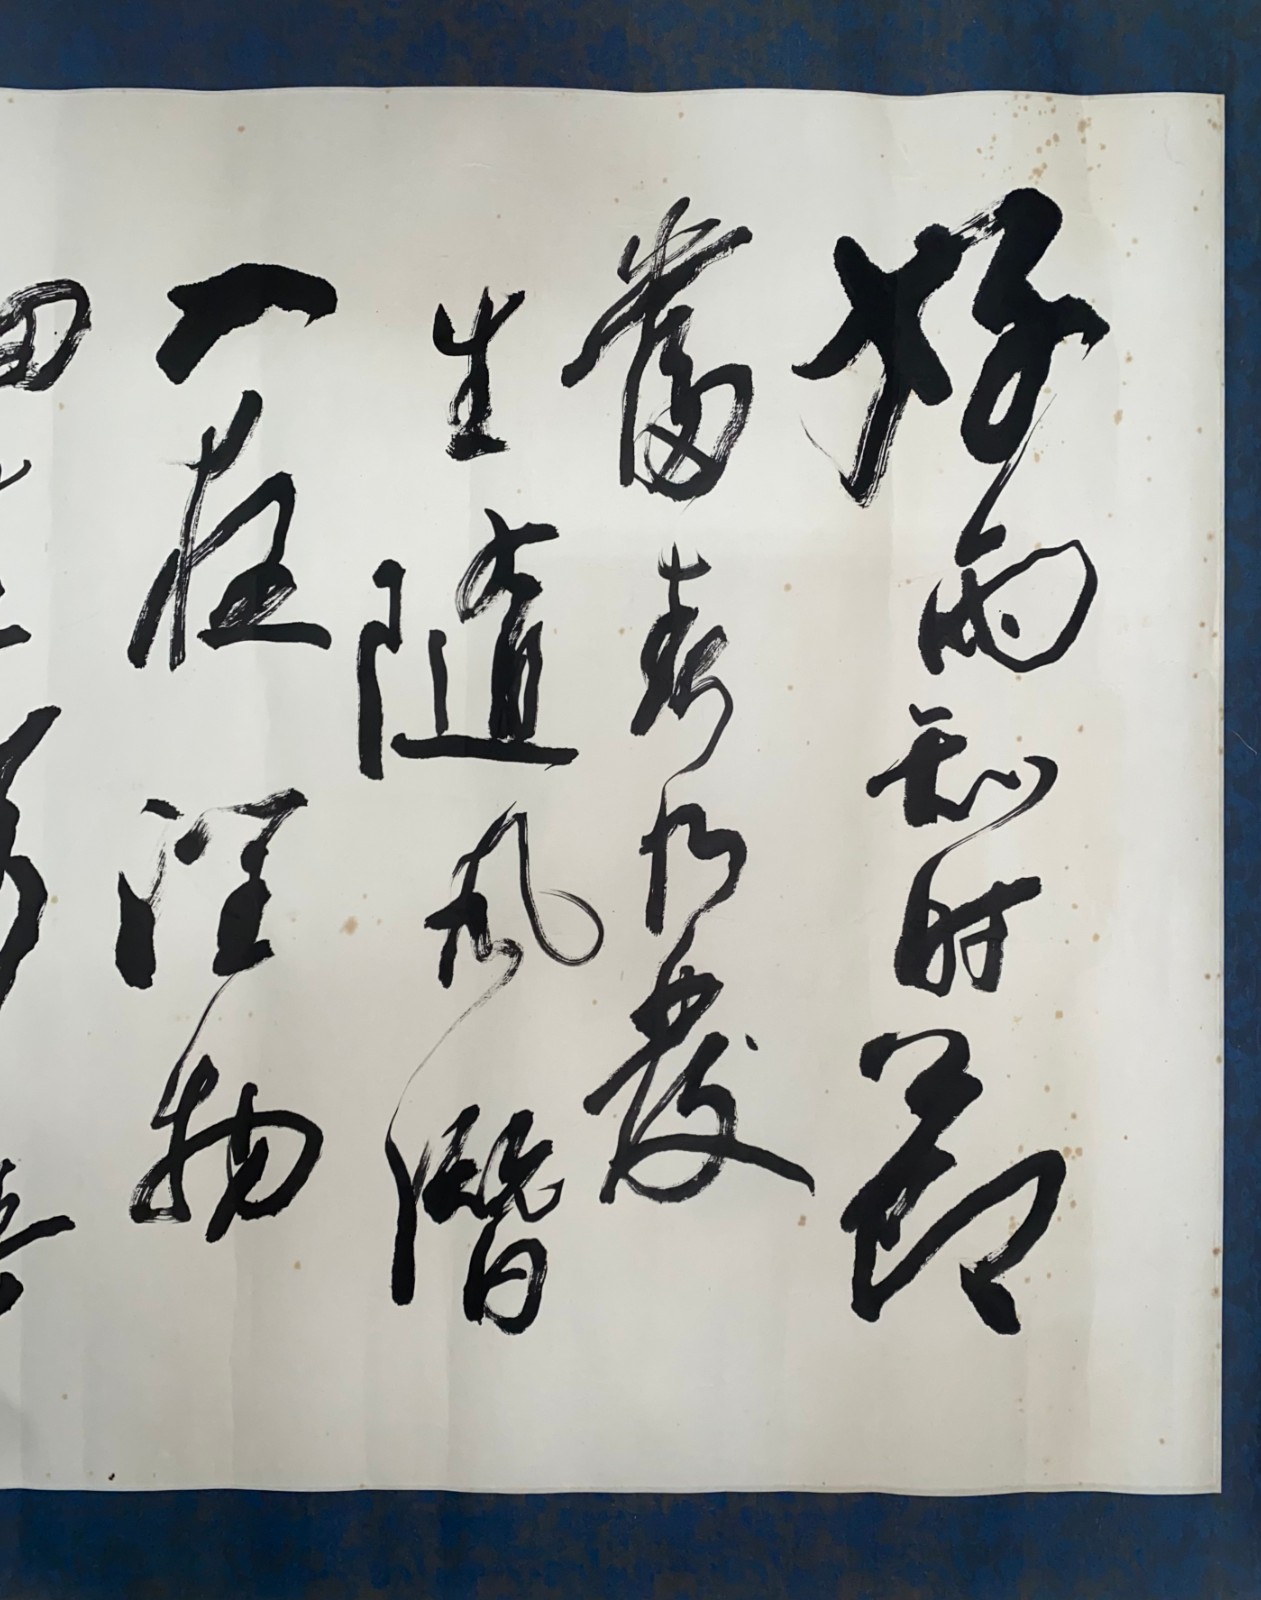 好雨知時節
當春乃發
生隨風潛
入夜潤物